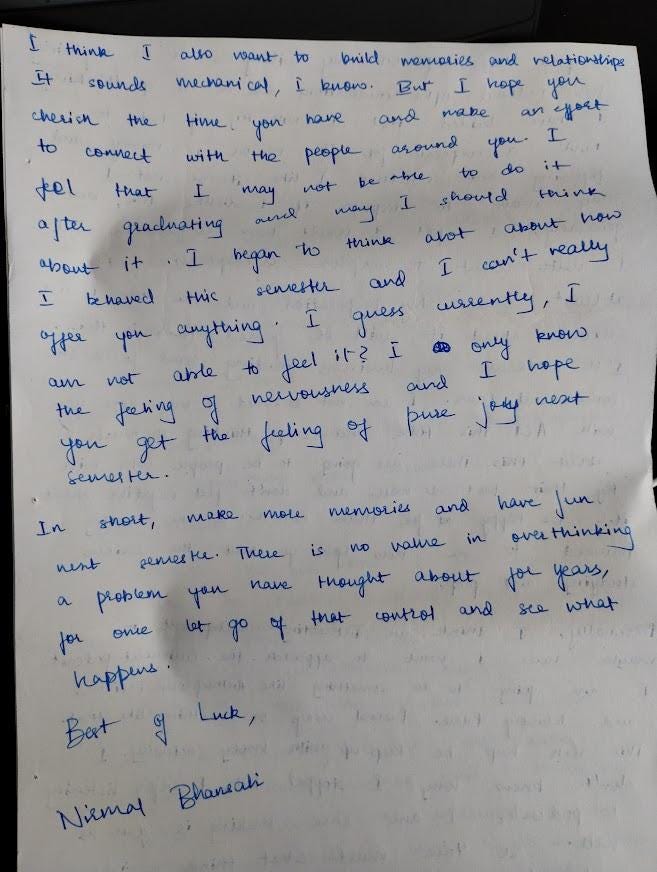 I think I also want to build memories and relationships
It sounds mechanical, I know. But I hope you
cherish the time you have and make an effort
to connect with the people around you. I
feel that I may not be able to do it
after graduating and may I should think
about it I began to think alot about how
I behaved this semester and I can't really
offer you anything. I guess currently, I
am not able to feel it? I only know
the feeling of nervousness and I hope
you get the feeling of pure joy next
semester.
In short, make more memories and have fun
next semester. There is no value in overthinking
a problem you have thought about for years,
for once let go of that control and see what
happens.
Best of Luck,
Nirmal Bhansali